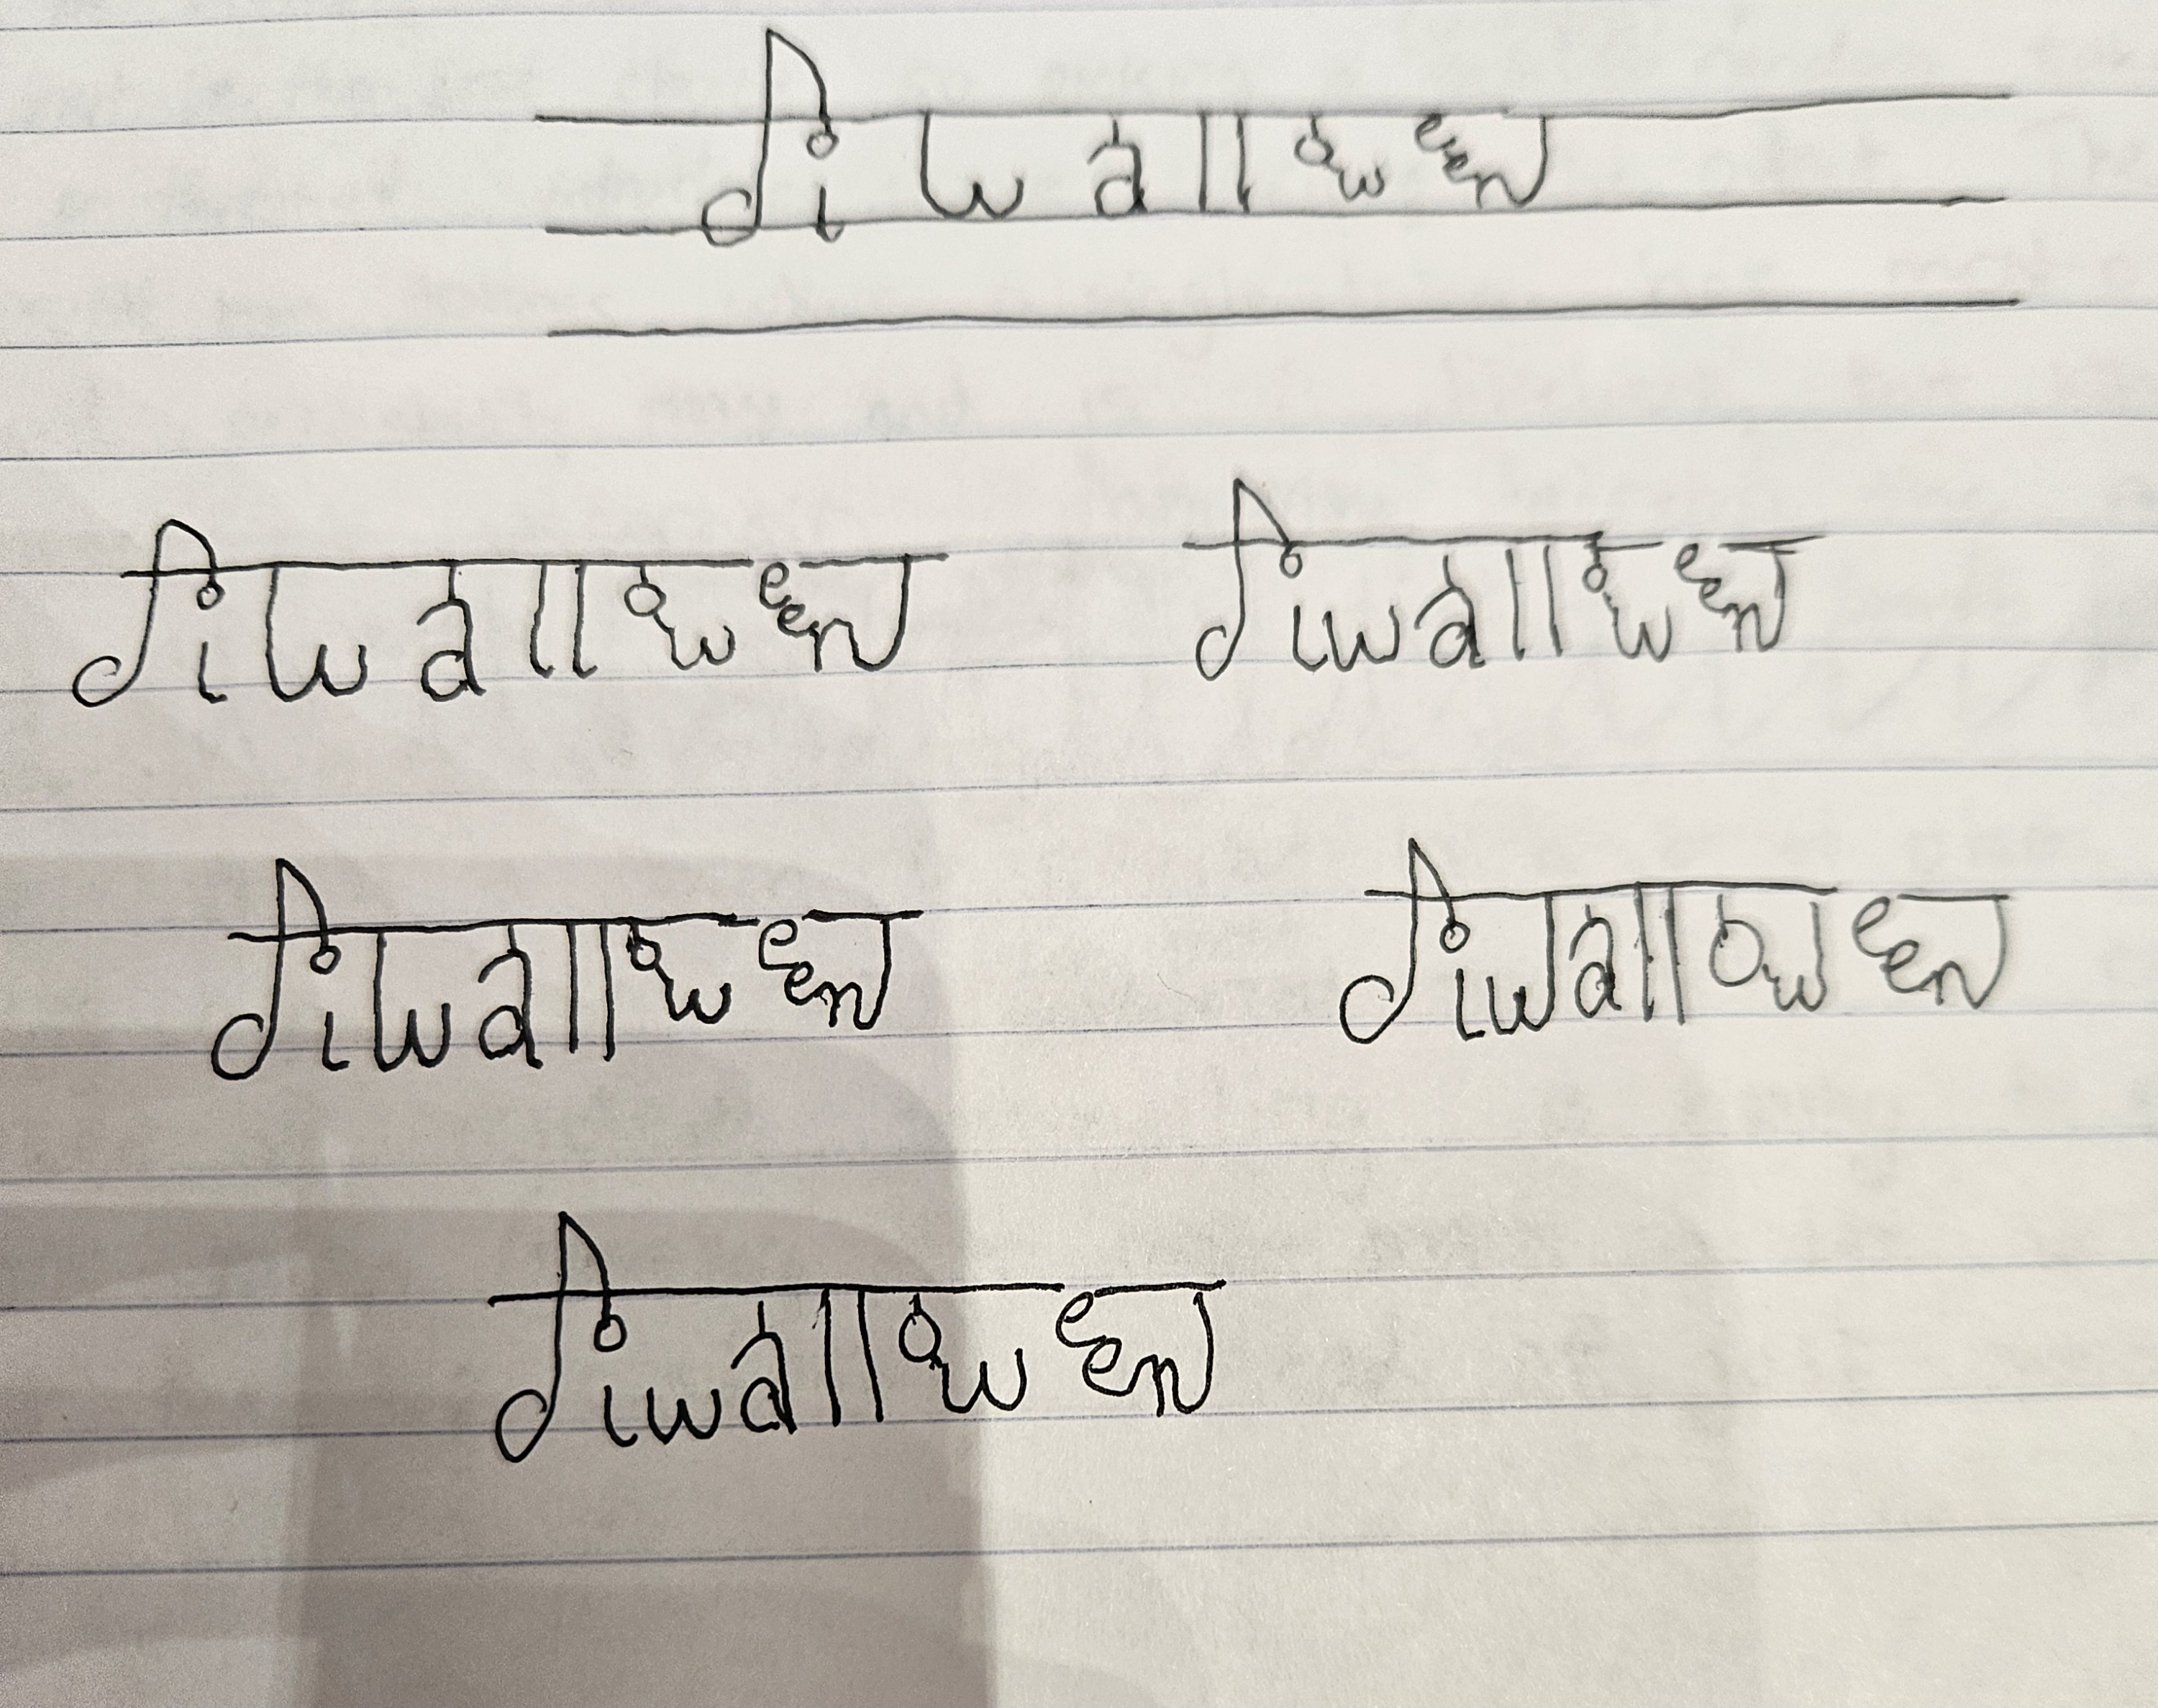 diwalloween
diwalloween
diwalloween
diwalloween
diwalloween
diwalloween